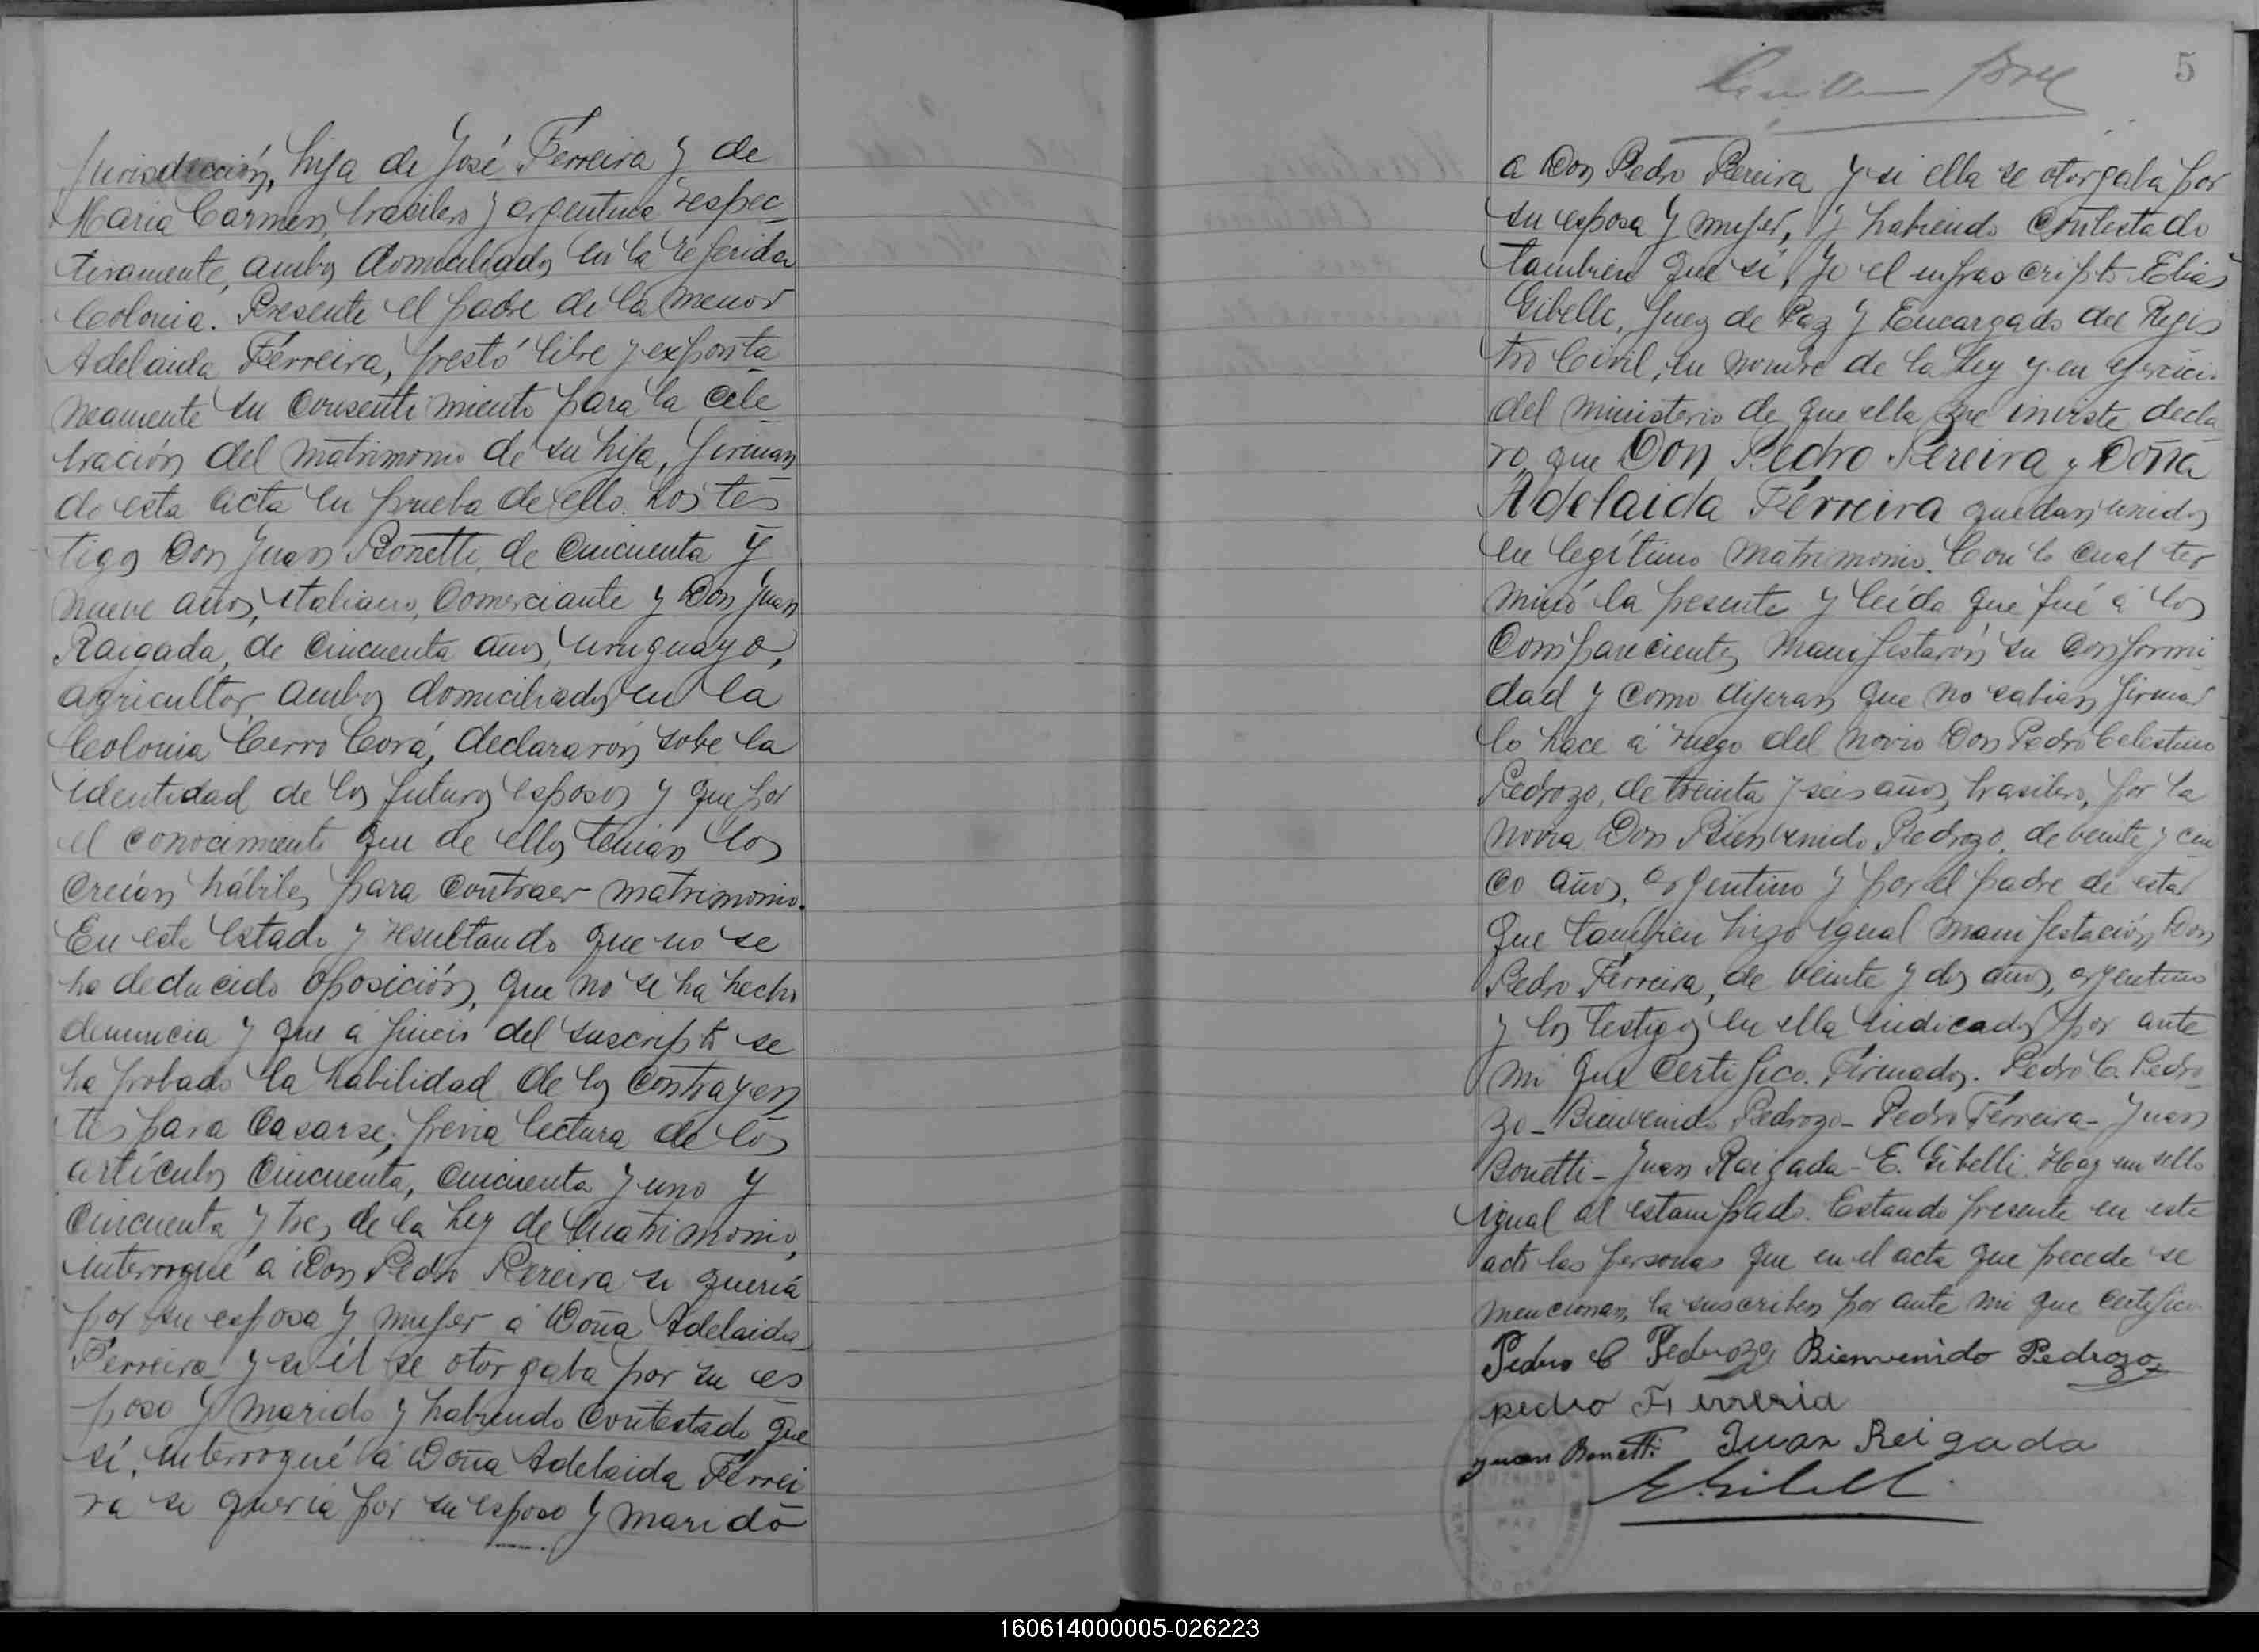 Jurisdicción, hija de José Ferreira y de
Maria Carmen, brasilero y argentina respec
tivamente, ambos domiciliados en la referida
Colonia. Presente el padre de la menor
Adelaida Ferreira, prestó libre y exponta
neamente su consentimiento para la cele
bración del matrimonio de su hija, firman
do esta acta en prueba de ello. Los tes
tigos Don Juan Bonetti, de cincuenta y
nueve años, italiano, comerciante y Don Juan
Raigada, de cincuenta años, uruguayo,
agricultor, ambos domiciliados en la
Colonia Cerro Corá, declararón sobre la
identidad de los futuros esposos y que por
el conocimiento que de ellos tenian los
creían hábiles para contraer matrimonio.
En este estado y resultando que no se
ha deducido oposición, que no se ha hecho
denuncia y que a juicio del suscripto se
ha probado la habilidad de los contrayen
tes para casarse; previa lectura de los
artículos cincuenta, cincuenta y uno y
cincuenta y tres de la Ley de Matrimonio,
interrogué a Don Pedro Pereira si quería
por su esposa y mujer a Doña Adelaida
Ferreira y si él se otorgaba por su es
poso y marido y habiendo contestado que
sí, interrogué a Doña Adelaida Ferrei
ra si queria por su esposo y marido
5
a Don Pedro Pereira y si ella se otorgaba por
su esposa y mujer, y habiendo contestado
tambien que sí, Yo el infrascripto Elias
Gibelli, Juez de Paz y Encargado del Regis
tro Civil, en nombre de la Ley y en ejercicio
del ministerio de que ella me inviste decla
ro que Don Pedro Pereira y Doña
Adelaida Ferreira quedan unidos
en legítimo matrimonio. Con lo cual ter
minó la presente y leída que fué á los
comparecientes manifestarón su conformi
dad y como dijeran que no sabian firmar
lo hace á ruego del novio Don Pedro Celestino
Pedrozo, de treinta y seis años, brasilero, por la
novia Don Bienvenido Pedrozo, de veinte y cin
co años, argentino y por el padre de esta
que tambien hizo igual manifestación, Don
Pedro Ferreira, de veinte y dos años, argentino
y los testigos en ella indicados por ante
mi que certifico. Firmados. Pedro C. Pedro
zo - Bienvenido Pedrozo - Pedro Ferreira - Juan
Bonetti - Juan Raigada - E. Gibelli. Hay un sello
igual al estampado. Estando presente en este
acto las personas que en el acta que precede se
mencionan, la suscriben por ante mi que certifico.
Pedro C Pedrozo Bienvenido Pedrozo
pedro Ferreria
Juan Bonetti Juan Reigada
E. Gibelli
160614000005-026223